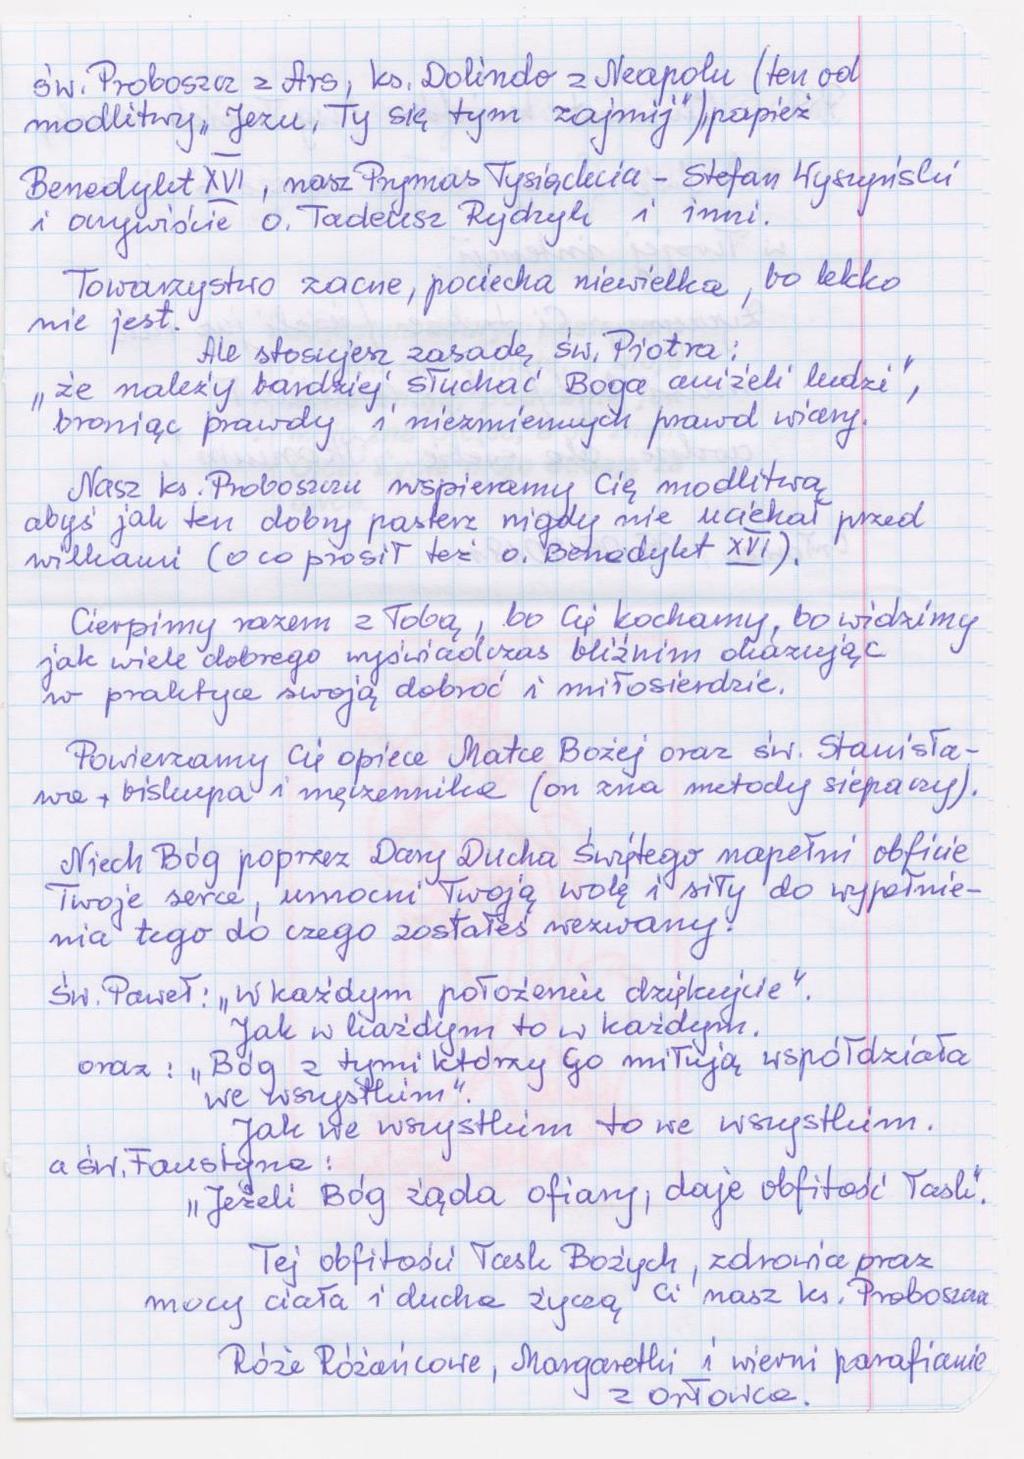 św. Proboszcz z Ars, ks. Dolindo z Neapolu (ten od
modlitwy „Jezu, Ty się tym zajmij"), papież
Benedykt XVI, nasz Prymas Tysiąclecia – Stefan Wyszyński
i oczywiście o. Tadeusz Rydzyk i inni.
Towarzystwo zacne, pociecha niewielka, bo lekko
nie jest.
Ale stosujesz zasadę św. Piotra:
„że należy bardziej słuchać Boga aniżeli ludzi",
broniąc prawdy i niezmiennych prawd wiary.
Nasz ks. Proboszczu wspieramy Cię modlitwą
abyś jak ten dobry pasterz nigdy nie uciekał przed
wilkami (o co prosił też o. Benedykt XVI).
Cierpimy razem z Tobą, bo Cię kochamy, bo widzimy
jak wiele dobrego wyświadczas bliźnim okazując
w praktyce swoją dobroć i miłosierdzie.
Powierzamy Cię opiece Matce Bożej oraz św. Stanisła-
wa, biskupa i męczennika (on zna metody siepaczy).
Niech Bóg poprzez Dary Ducha Świętego napełni obficie
Twoje serce, umocni Twoją wolę i siły do wypełnie-
nia tego do czego zostałeś wezwany!
Św. Paweł: „W każdym położeniu dziękujcie".
Jak w każdym to w każdym.
oraz: „Bóg z tymi którzy Go miłują współdziała
we wszystkim".
Jak we wszystkim to we wszystkim.
a św. Faustyna:
„Jeżeli Bóg żąda ofiary, daje obfitość łask".
Tej obfitości łask Bożych, zdrowia oraz
mocy ciała i ducha życzą Ci nasz ks. Proboszczu
Róże Różańcowe, Margaretki i wierni parafianie
z Orłowca.